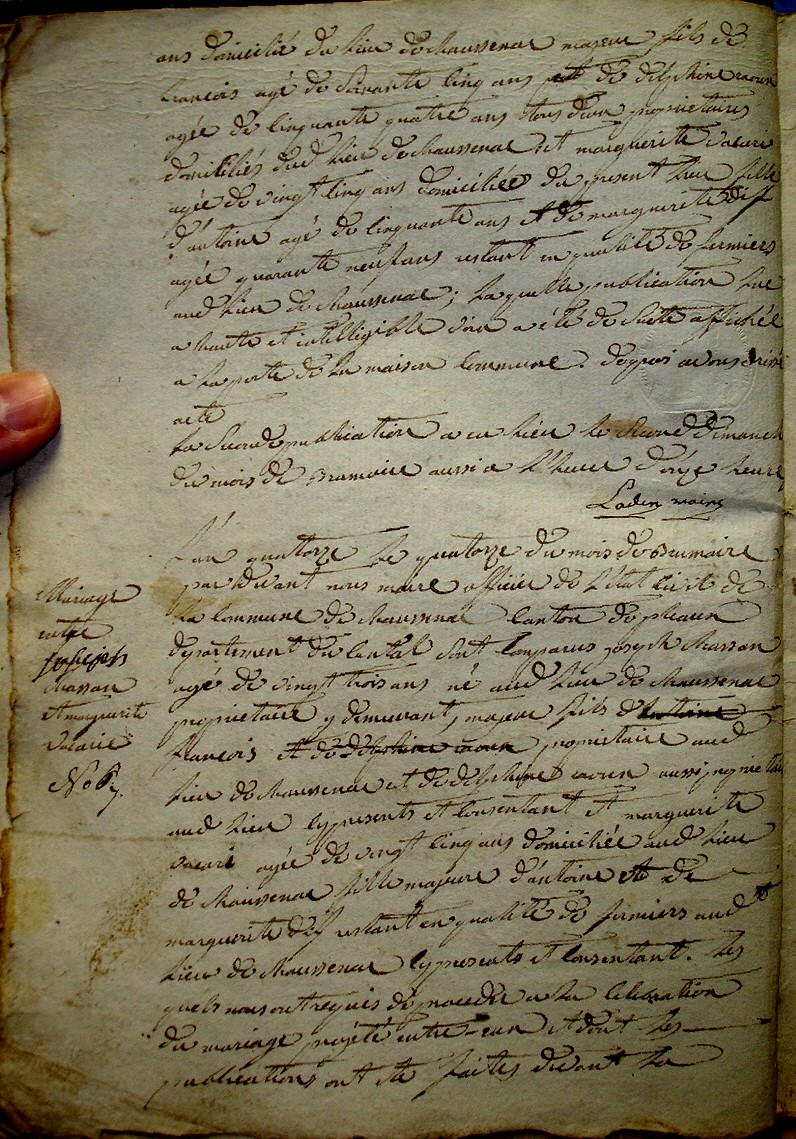 ans domicilié du lieu de chaussenac majeur fils de
francois agé de soixante cinq ans et de delphine
agée de cinquante quatre ans tous deux proprietaires
domiciliés dud lieu de chaussenac et marguerite vacari
agée de vingt cinq ans domiciliée du present lieu fille
d'antoine agé de cinquante ans et de marguerite
agée quarante neuf ans restant en qualité de fermiers
aud lieu de chaussenac; laquelle publication lue
a haute et intelligible voix a été de suite affichée
a la porte de la maison commune. de quoi avons
acte
la seconde publication a eu lieu le second dimanch
du mois de Brumaire aussi a l'heure d'onze heures
maire
L'an quatorze le quatorze du mois de Brumaire
par devant nous maire officier de l'état civil de
la commune de chaussenac canton de pleaux
departement du cantal sont comparus joseph chassan
agé de vingt trois ans né aud lieu de chaussenac
proprietaire y demeurant, majeur fils d'antoine
francois et de delphine proprietaire aud
lieu de chaussenac et de delphine aussi proprietaire
aud lieu cy presents et consentant et marguerite
vacari agée de vingt cinq ans domiciliée aud lieu
de chaussenac fille majeure d'antoine et de
marguerite restant en qualité de fermiers aud
lieu de chaussenac cy presents et consentant. les
quels nous ont requis de proceder a la celebration
du mariage projété entre eux et dont les
publications ont été faites devant la
Mariage
entre
joseph
chassan
et marguerite
vacarie
No 6